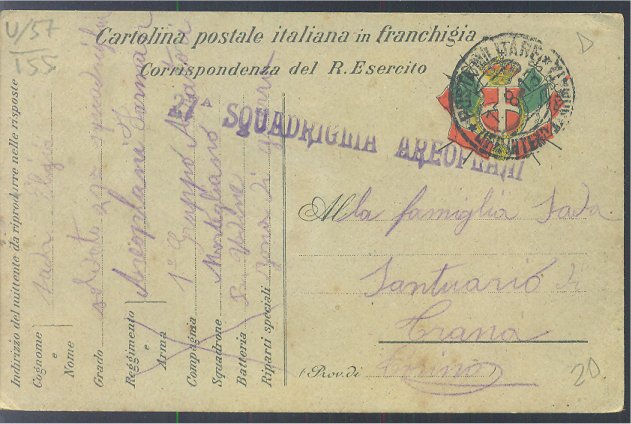 V/57
155
Cartolina postale italiana in franchigia
Corrispondenza del R. Esercito
2ª SQUADRIGLIA AREOPLANI
POSTA MILITARE
Alla famiglia Sada
Santuario di
Trana
(Prov. di Torino)
20
Indirizzo del mittente da riprodurre nelle risposte
Cognome e Nome Sada
Grado soldato squadriglia
Reggimento e Arma Areoplani Farman
Compagnia 1º Gruppo
Squadrone
Batteria Udine
Riparti speciali Zona di guerra